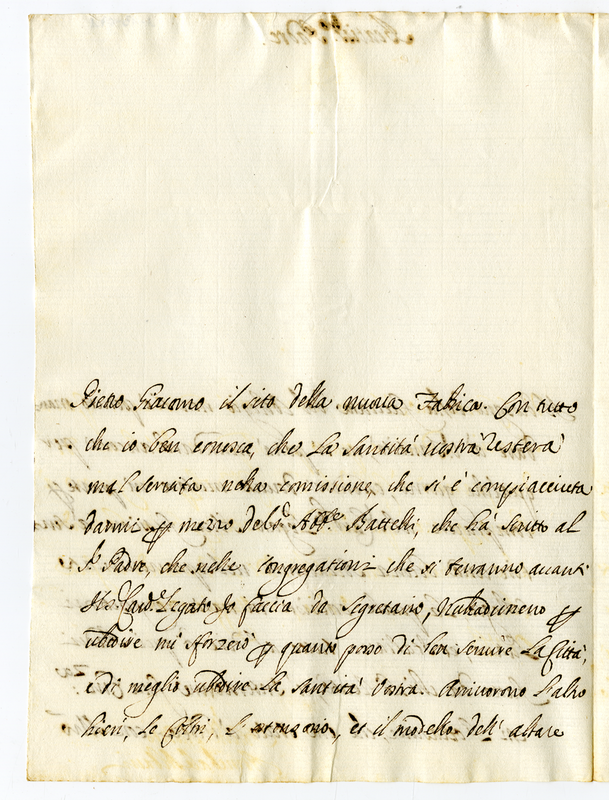 Pietro Giacomo il sito della nuova Fabrica. Con tutto
che io ben conosca, che La Santità vostra restera
mal servata nella comissione, che si è compiacciuta
darmi per mezzo del Sr. Abbe. Battelli, che ha scritto al
Pr. Padre, che nelle congregationi che si terranno avanti
il Sr. Card. Legato Io faccia da Segretario, nulladimeno per
ubbidire mi sforzerò per quanto posso di ben servire La Città,
e di meglio ubbidire La Santità Vostra. Arrivorono l'altro
hieri, Le et il modello dell' altare